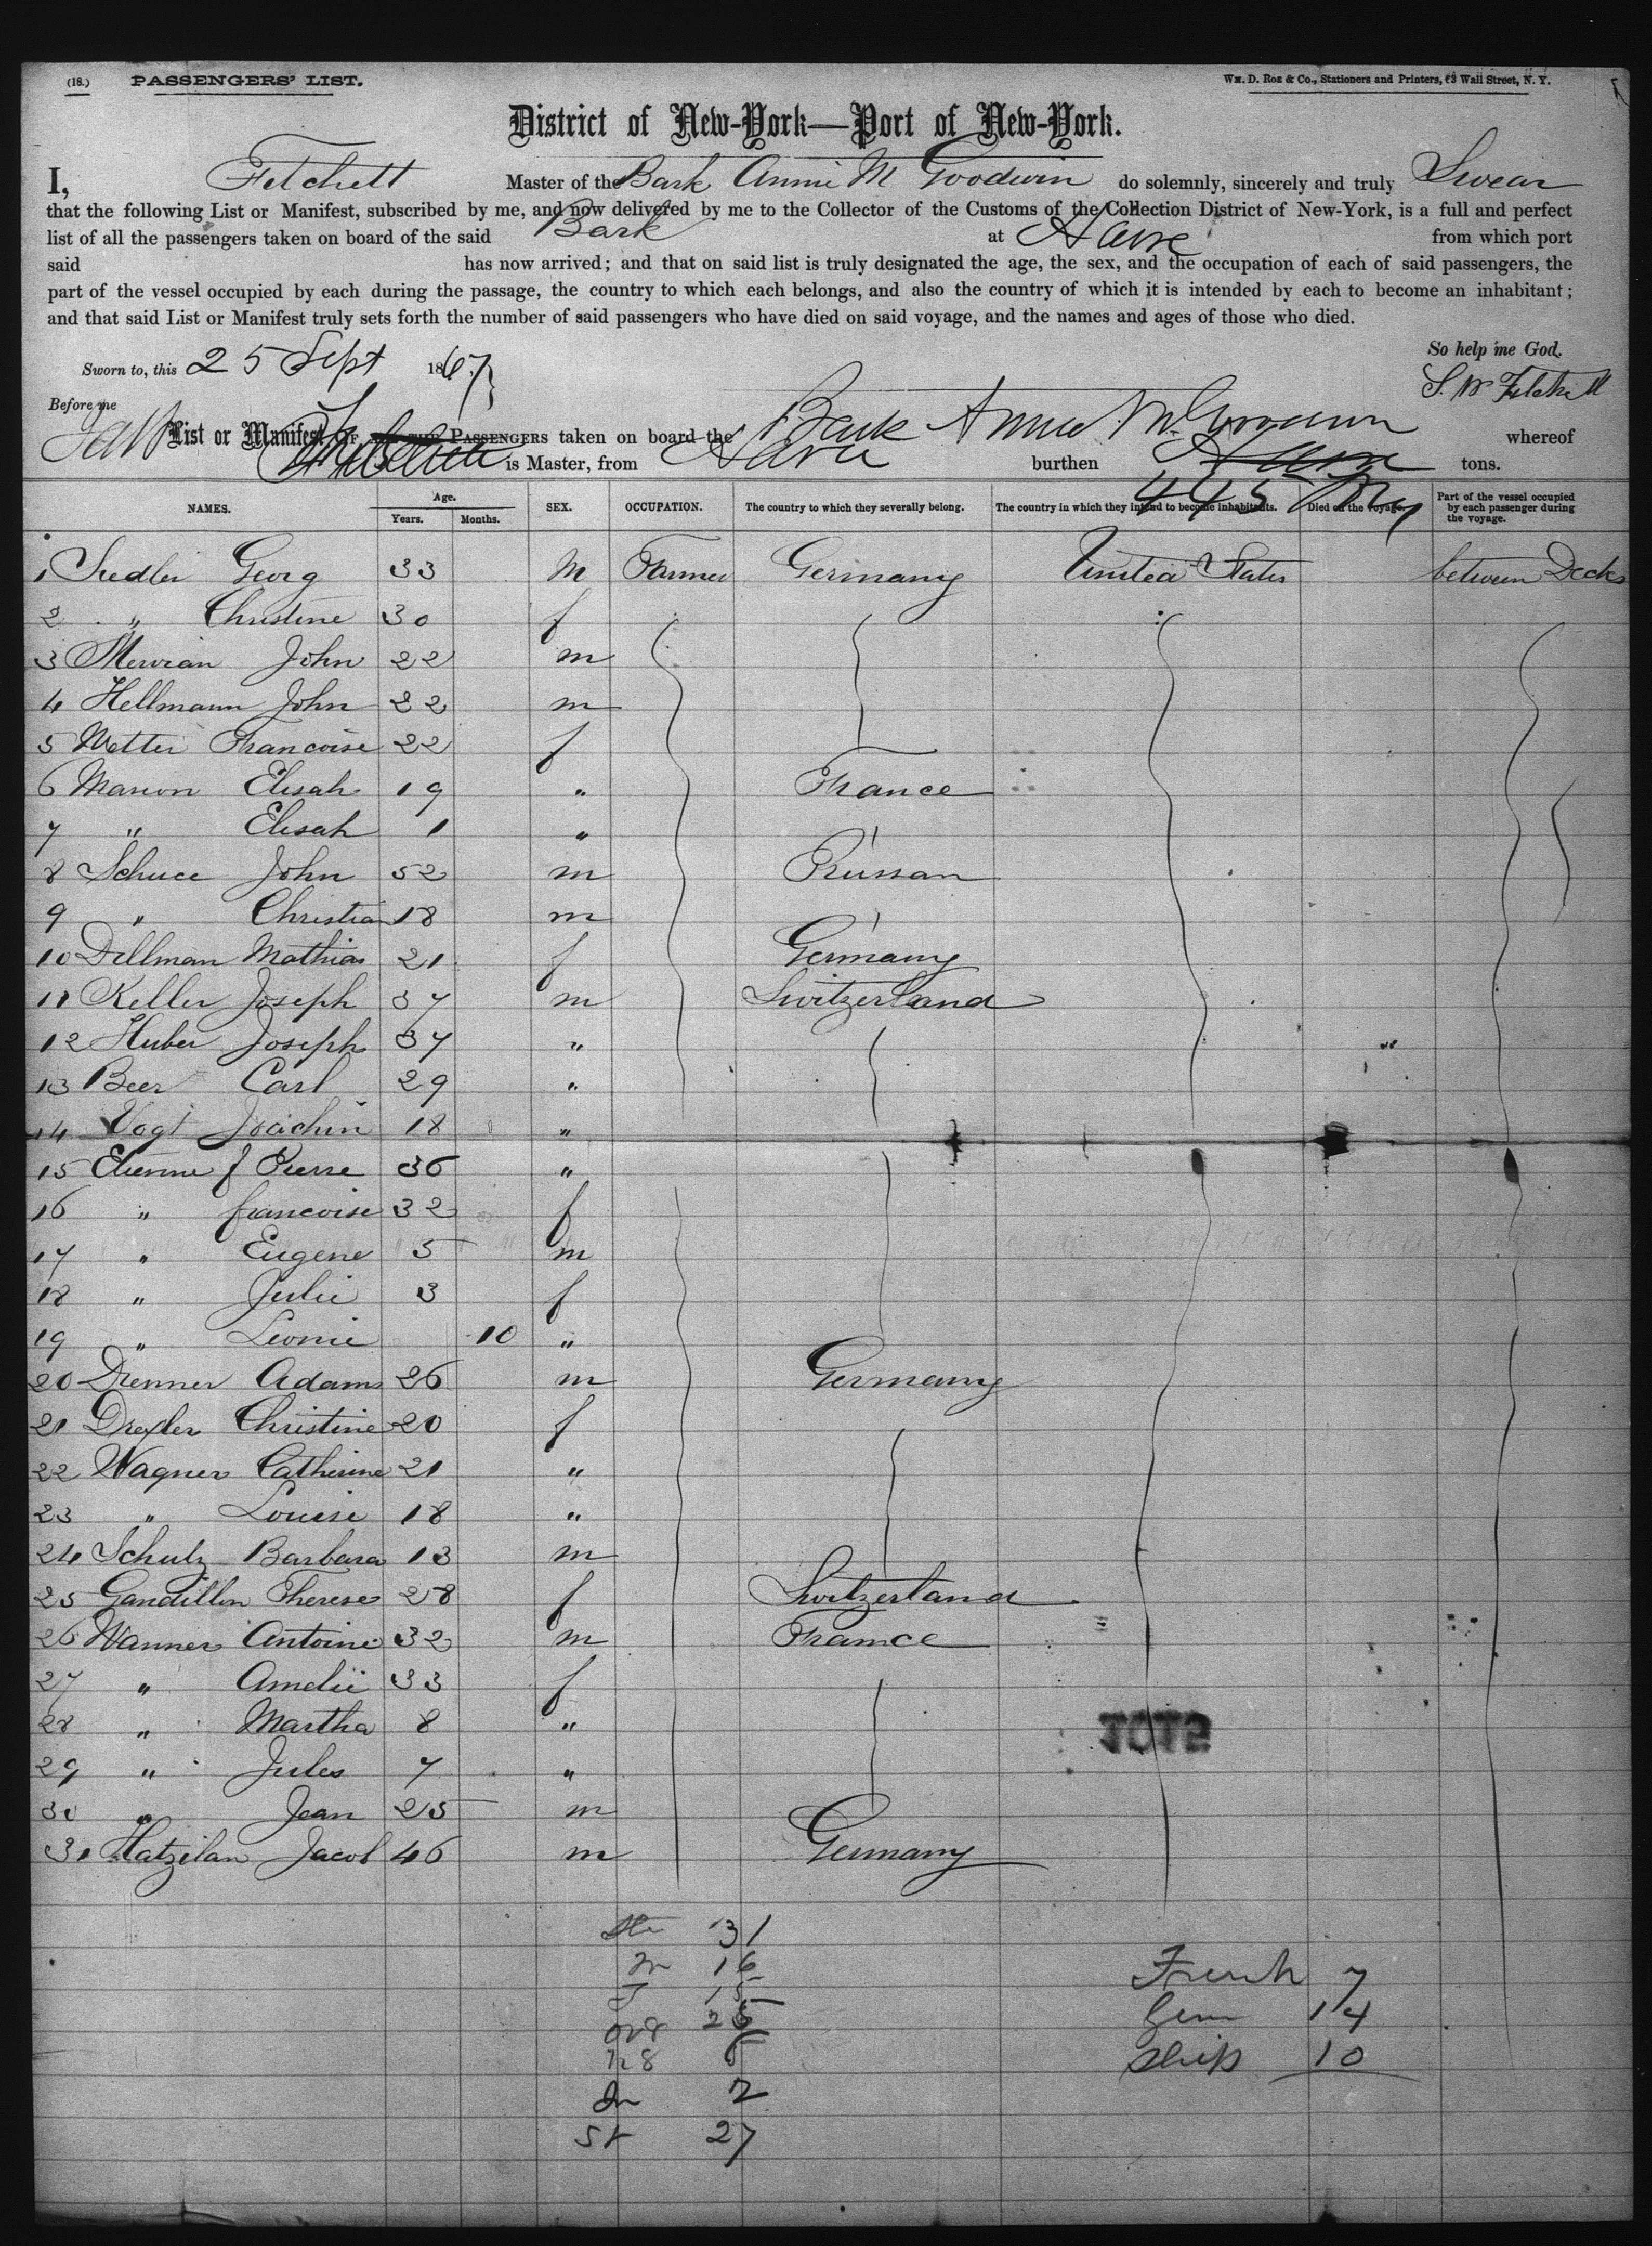 (18.) PASSENGERS' LIST. Wm. D. Roe & Co., Stationers and Printers, 63 Wall Street, N. Y.
District of New-York—Port of New-York.
I, Fitchett Master of the Bark Annie M Goodwin do solemnly, sincerely and truly Swear
that the following List or Manifest, subscribed by me, and now delivered by me to the Collector of the Customs of the Collection District of New-York, is a full and perfect
list of all the passengers taken on board of the said Bark at Havre from which port
said has now arrived; and that on said list is truly designated the age, the sex, and the occupation of each of said passengers, the
part of the vessel occupied by each during the passage, the country to which each belongs, and also the country of which it is intended by each to become an inhabitant;
and that said List or Manifest truly sets forth the number of said passengers who have died on said voyage, and the names and ages of those who died.
So help me God.
Sworn to, this 25 Sept 1867
Before me
List or Manifest OF ALL THE PASSENGERS taken on board the Bark Annie M. Goodwin whereof
is Master, from Havre burthen tons.
445
NAMES. Age. Years. Months. SEX. OCCUPATION. The country to which they severally belong. The country in which they intend to become inhabitants. Died on the voyage. Part of the vessel occupied by each passenger during the voyage.
1 Georg 33 M Farmer Germany United States between Decks
2 " Christine 30 f
3 John 22 m
4 Hellmann John 22 m
5 Francoise 22 f
6 Marion Elisah 19 " France
7 " Elisah 1 "
8 John 52 m Prussan
9 " Christian 18 m
10 Dillman Mathias 21 f Germany
11 Keller Joseph 37 m Switzerland
12 Huber Joseph 37 " "
13 Beer Carl 29 "
14 Vogt Joachin 18 "
15 Etienne f Pierre 36 "
16 " francoise 32 f
17 " Eugene 5 m
18 " Julie 3 f
19 " Leonie 10 "
20 Drenner Adams 26 m Germany
21 Drexler Christine 20 f
22 Wagner Catherine 21 "
23 " Louise 18 "
24 Schulz Barbara 13 m
25 Gandillon Therese 28 f Switzerland
26 Wanner Antoine 32 m France
27 " Amelie 33 f
28 " Martha 8 "
29 " Jules 7 "
30 " Jean 25 m
31 Hatzilan Jacob 46 m Germany
31
m 16
French 7
15
Germ 14
10
2
27